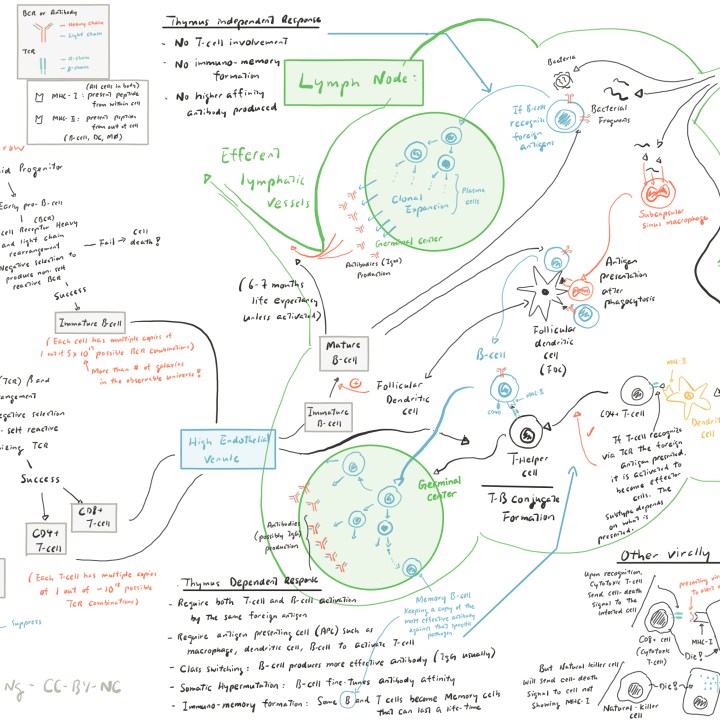 BCR or Antibody
Heavy chain
Light chain
TCR
α-chain
β-chain
(All cells in body)
MHC-I: present peptide
from within cell
MHC-II: present peptides
from out of cell
(B-cell, DC, MØ)
Thymus independent Response
- No T-cell involvement
- No immuno-memory
formation
- No higher affinity
antibody produced
Lymph Node:
Efferent
lymphatic
vessels
Clonal
Expansion
Plasma
cells
Germinal center
Antibodies (IgM)
Production
If B-cell
recognize
foreign
antigens
Bacteria
Bacterial
Fragments
Subcapsular
sinus macrophage
Antigen
presentation
after
phagocytosis
Follicular
dendritic
cell
(FDC)
Progenitor
Early pro-B-cell
(BCR)
cell Receptor Heavy
and light chain
rearrangement
Negative selection to
produce non-self
reactive BCR
Fail → Cell
death!
Success
Immature B-cell
(Each cell has multiple copies of
possible BCR combinations)
More than # of galaxies
in the observable universe!
(6-7 months
life expectancy
unless activated)
Mature
B-cell
Immature
B-cell
Follicular
Dendritic
cell
High Endothelial
Venule
(TCR) β and
negative selection
self reactive
TCR
Success
CD8+
T-cell
CD4+
T-cell
(Each T-cell has multiple copies
possible
TCR combinations)
Suppress
B-cell
MHC-II
T-Helper
cell
T-B Conjugate
Formation
CD4+ T-cell
MHC-II
Dendritic
cell
If T-cell recognize
via TCR the foreign
antigen presented,
it is activated to
become effector
cells. The
subtype depends
on what is
presented.
Germinal
center
Antibodies
(possibly IgG)
production
Memory B-cell
Keeping a copy of the
most effective antibody
against that specific
pathogen
Thymus Dependent Response
- Require both T-cell and B-cell activation
by the same foreign antigen
- Require antigen presenting cell (APC) such as
macrophage, dendritic cell, B-cell to activate T-cell
- Class Switching: B-cell produces more effective antibody (IgG usually)
- Somatic Hypermutation: B-cell fine-tunes antibody affinity
- Immuno-memory formation: Some B and T cells become Memory cells
that can last a life-time
Other virally
Upon recognition,
Cytotoxic T-cell
send cell-death
signal to the
infected cell
presenting
CD8+ cell
(Cytotoxic
T-cell)
MHC-I
Die!
But Natural killer cell
will send cell death
signal to cell not
showing MHC-I
Die!
Natural-killer
cell
Ng - CC-BY-NC